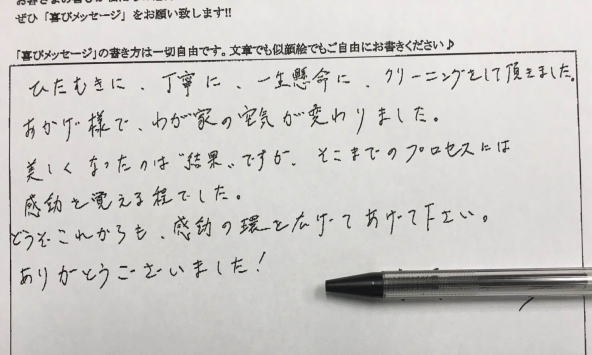 ぜひ「喜びメッセージ」をお願い致します!!
「喜びメッセージ」の書き方は一切自由です。文章でも似顔絵でもご自由にお書きください♪
ひたむきに、丁寧に、一生懸命に、クリーニングをして頂きました。
おかげ様で、わが家の空気が変わりました。
美しくなったのは"結果"ですが、そこまでのプロセスには
感動を覚える程でした。
どうぞこれからも、感動の環を広げてあげて下さい。
ありがとうございました!